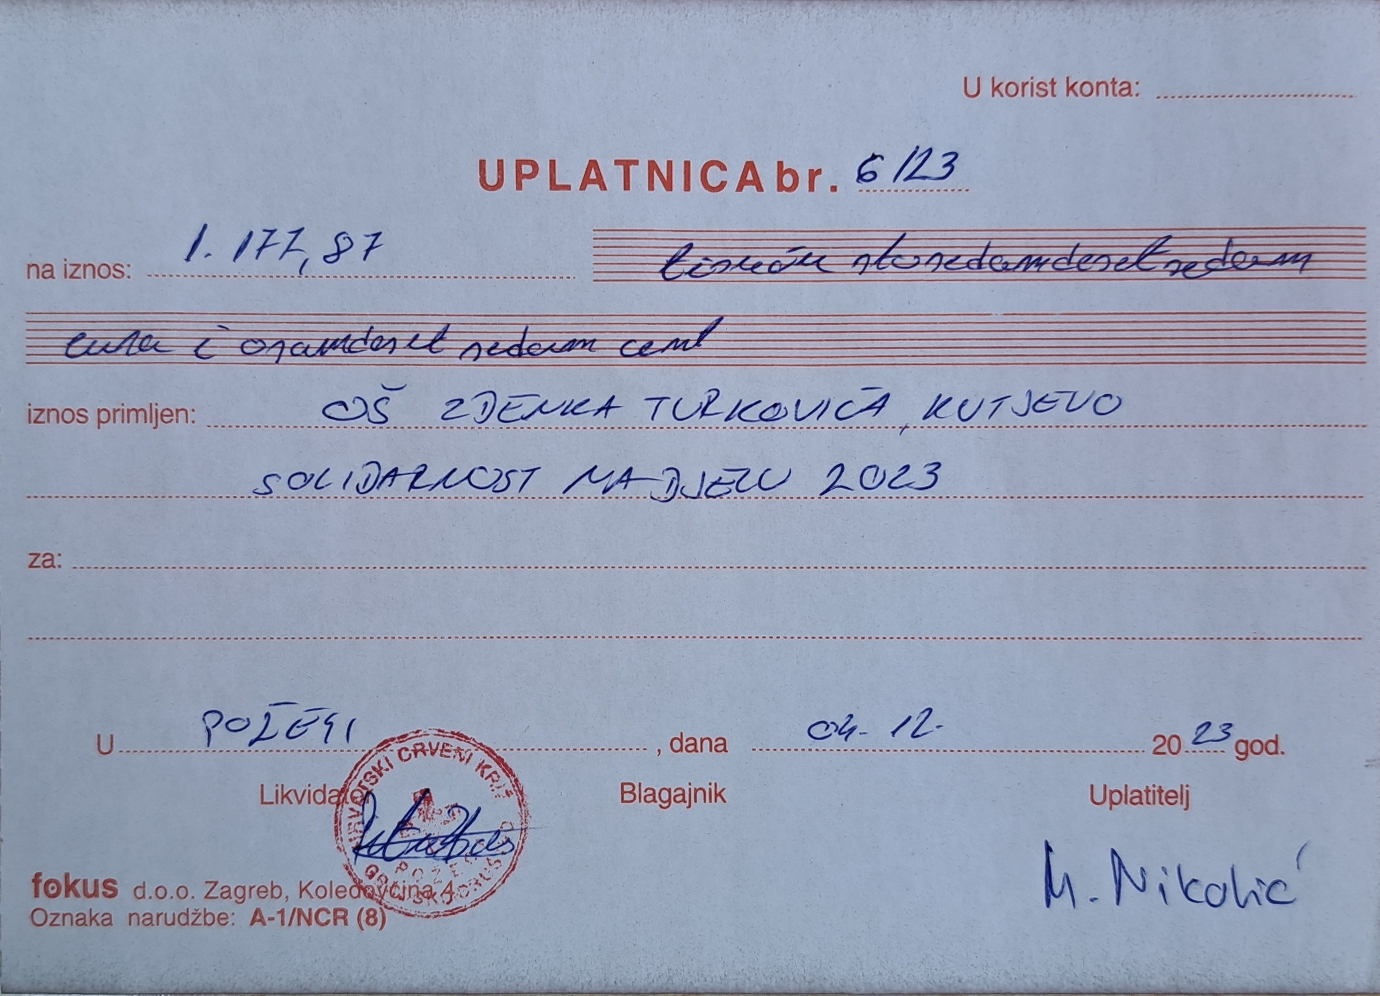 U korist konta:
UPLATNICA br. 6/23
na iznos: 1.177,87 tisuću stosedamdeset sedam
eura i osamdeset sedam cent
iznos primljen: OŠ ZDENKA TURKOVIĆA, KUTJEVO
SOLIDARNOST NA DJELU 2023
za:
U POŽEGI, dana 04. 12. 2023 god.
Likvidator Blagajnik Uplatitelj
HRVATSKI CRVENI KRIŽ
GRADSKO DRUŠTVO
POŽEGA
M. Nikolić
fokus d.o.o. Zagreb, Koledovčina 4
Oznaka narudžbe: A-1/NCR (8)